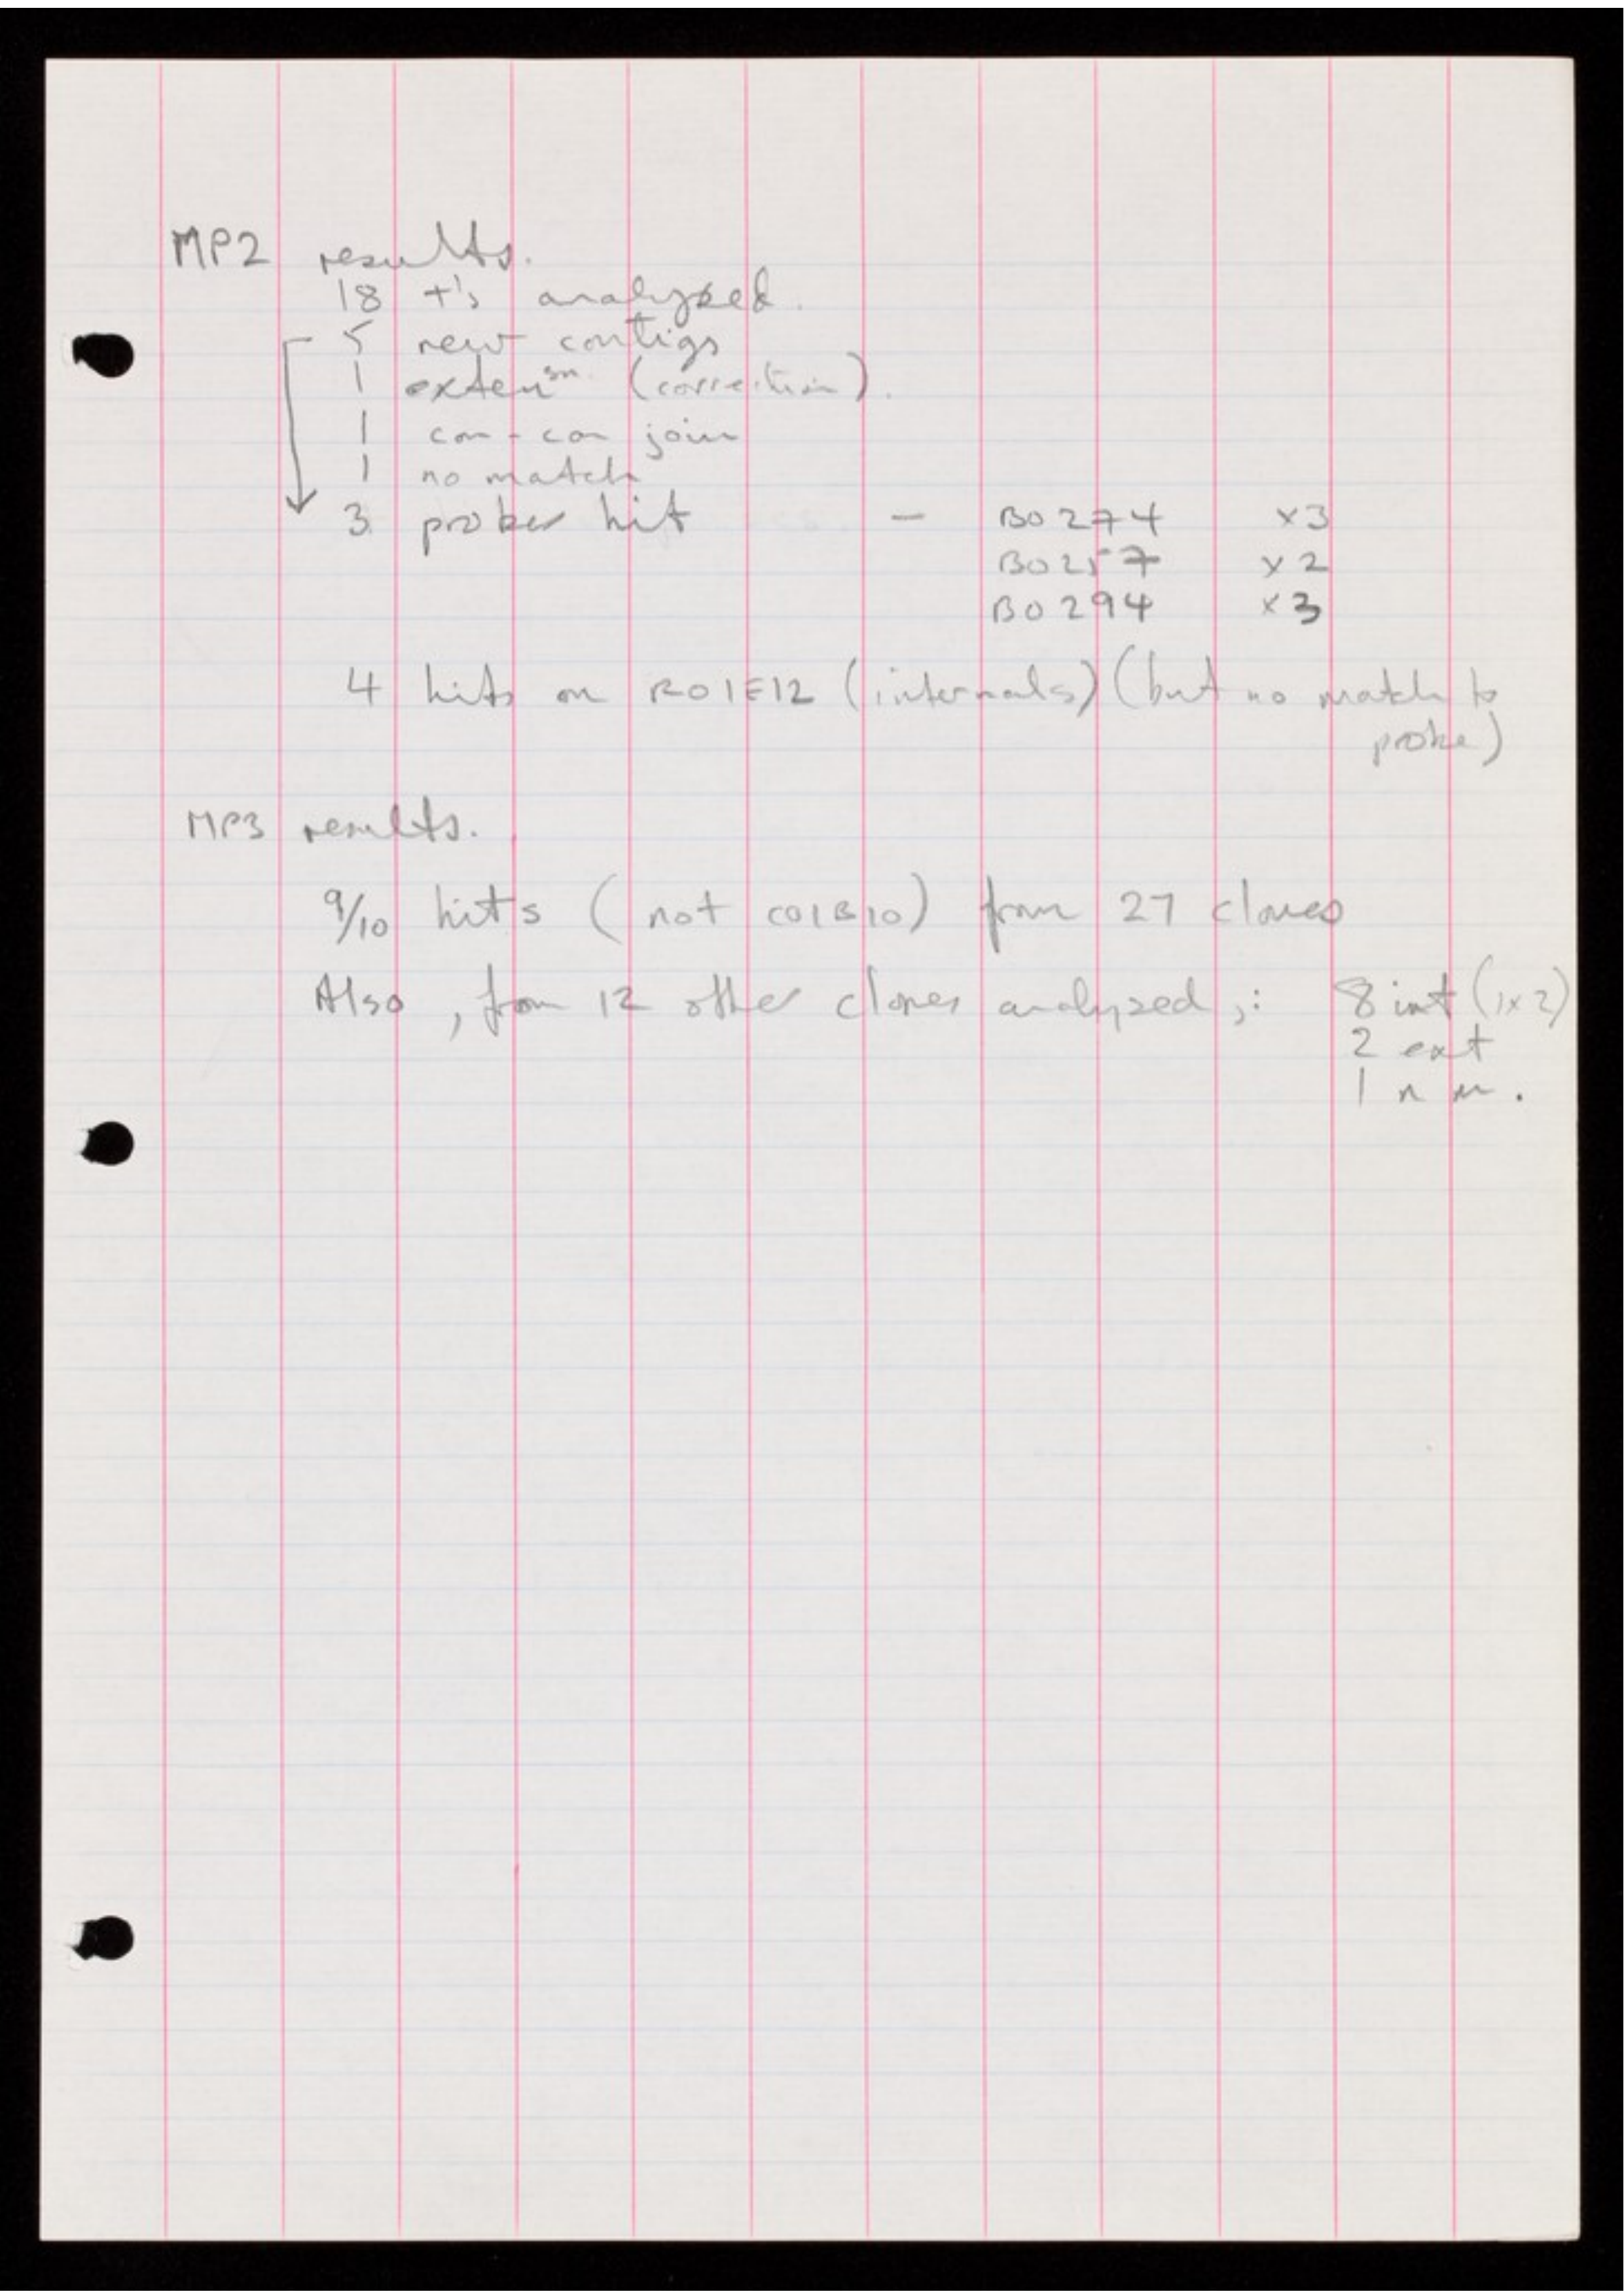 MP2 results.
18 +'s analyzed.
5 new contigs
1 extensn. (correction).
1 con-con join
1 no match
3 probes hit - B0274 x3
B0257 x2
B0294 x3
4 hits on R01E12 (internals) (but no match to
probe)
MP3 results.
9/10 hits (not C01B10) from 27 clones
Also, from 12 other clones analyzed,: 8 int (1x2)
2 ext
1 n m.